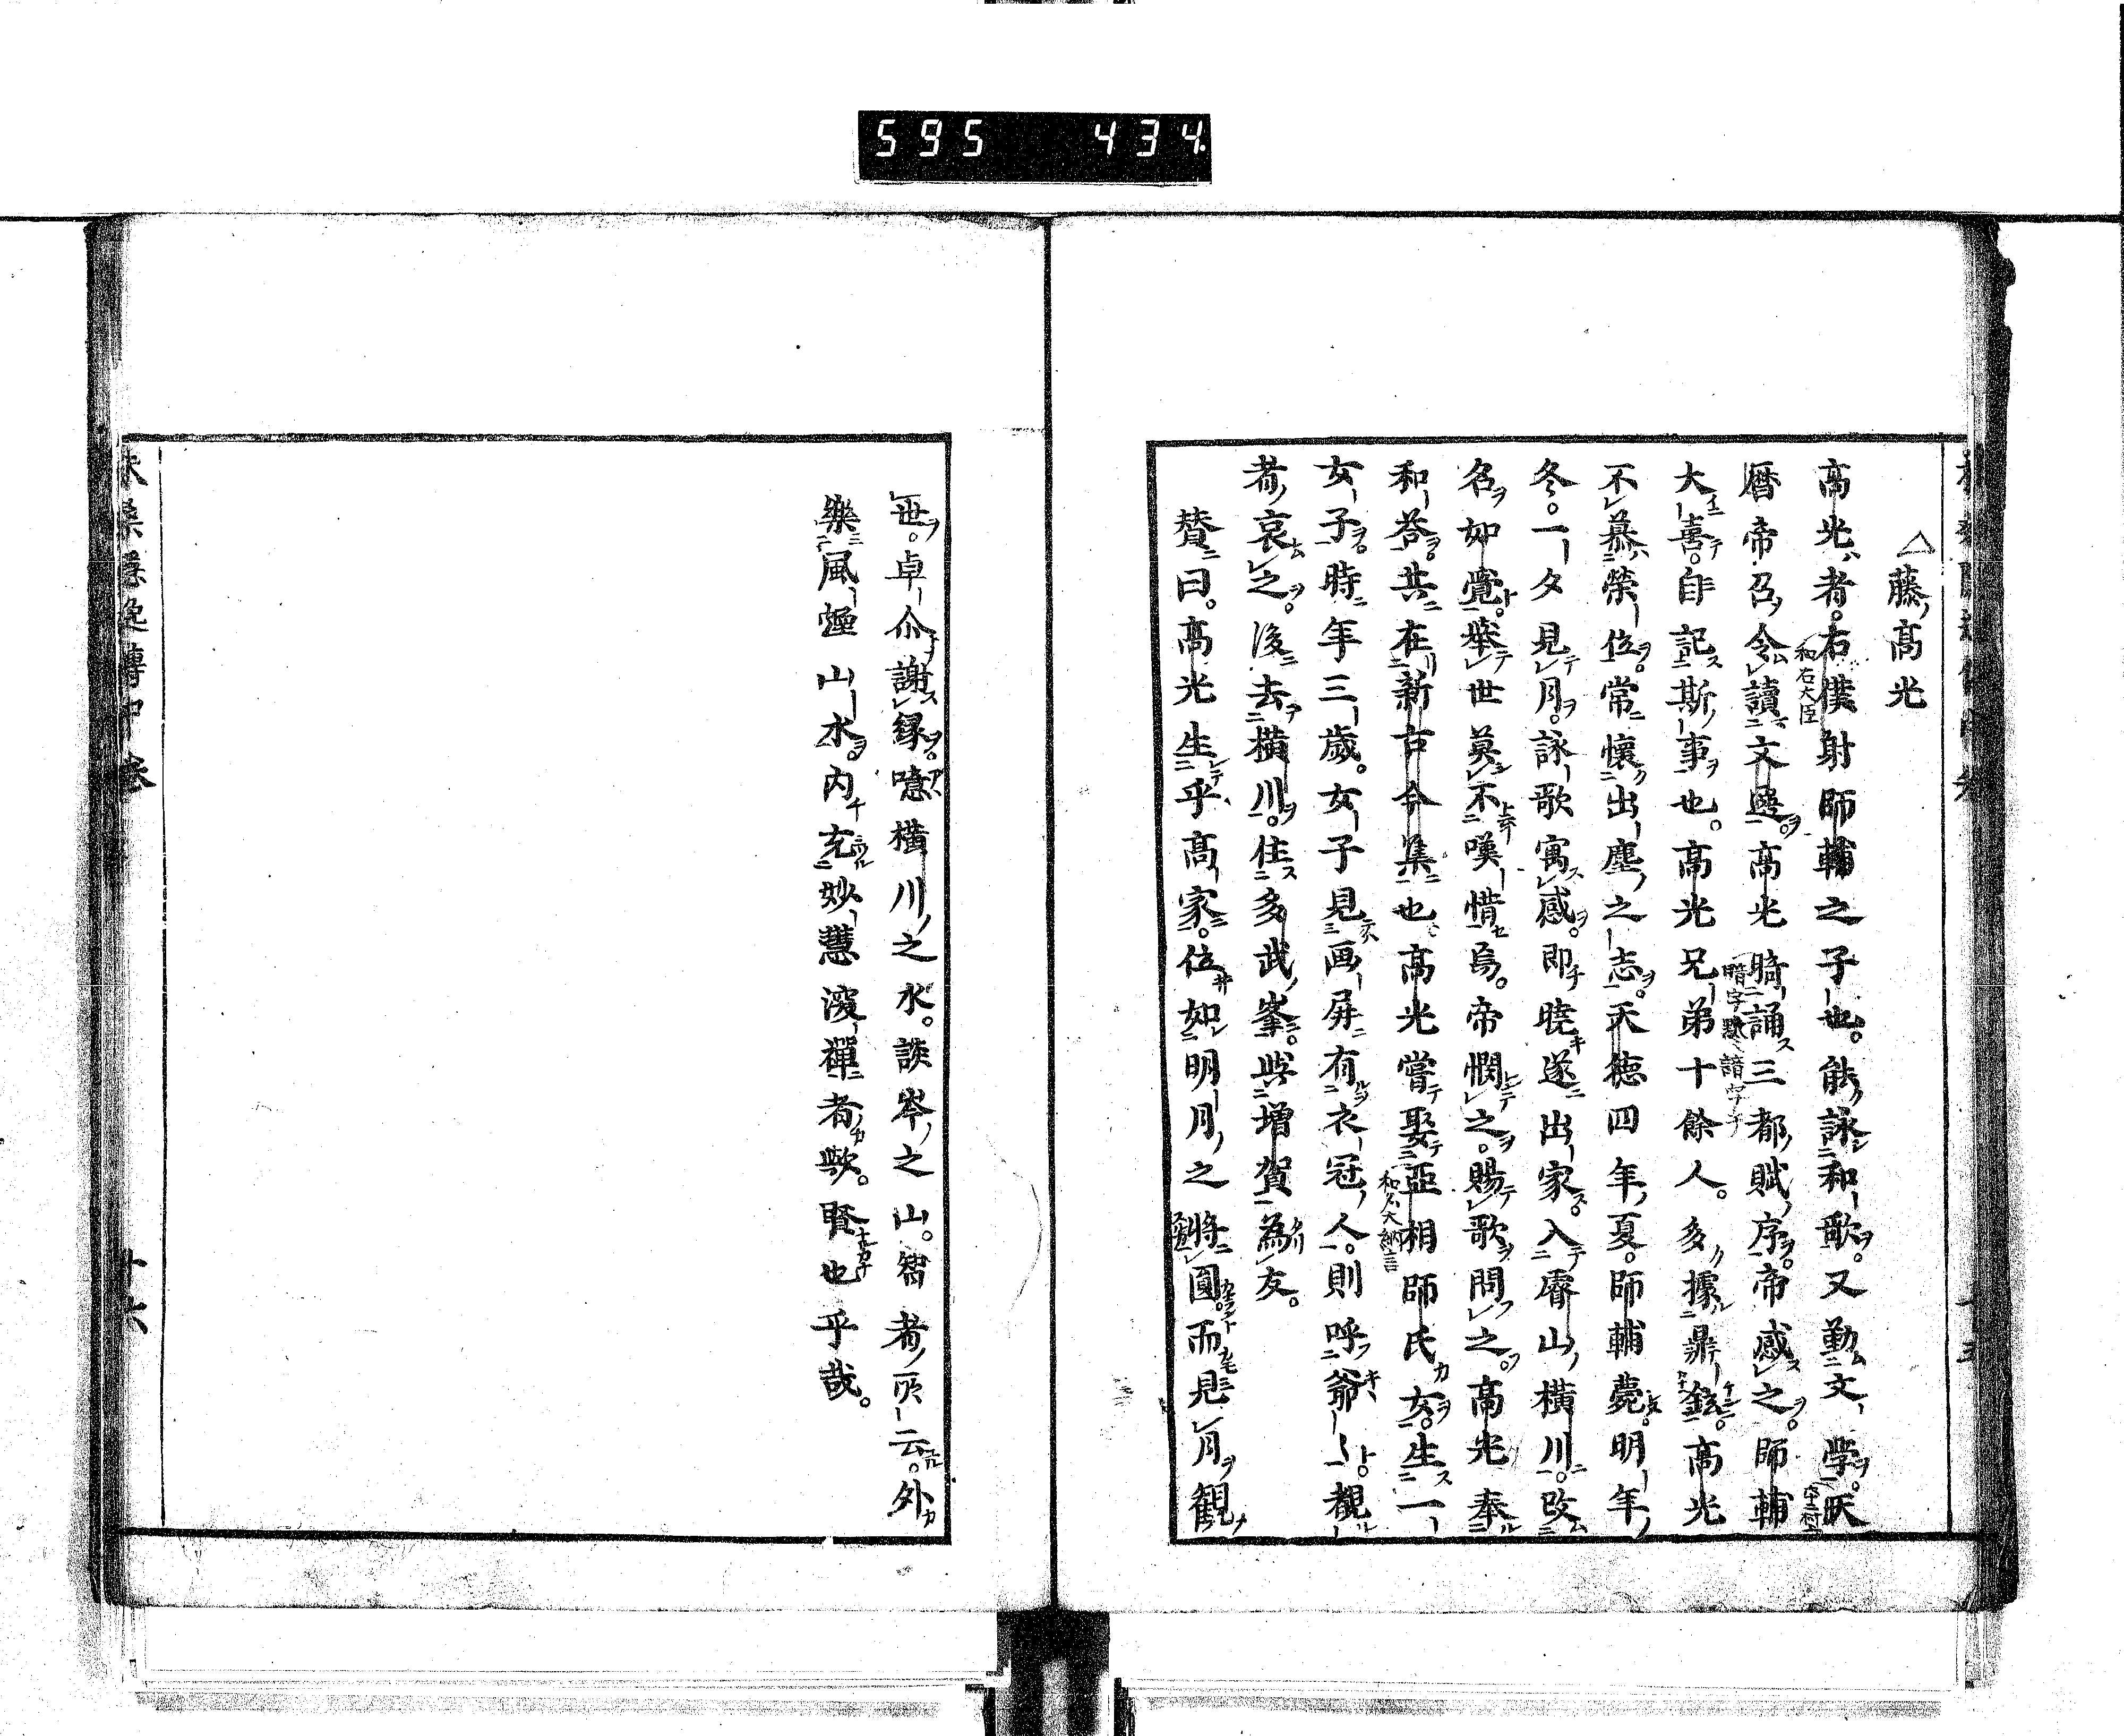 595 434
藤高光
高光者。右僕射師輔之子也。能詠和歌。又勤文学。天
暦帝召令讀文選。高光暗誦三都賦序。帝感之。師輔
大喜。自記斯事也。高光兄弟十餘人。多據鼎鉉。高光
不慕榮位。常懷出塵之志。天徳四年夏。師輔薨。明年
冬。一夕見月。詠歌寓感。即曉遂出家。入睿山横川。改
名如覺。舉世莫不嘆惜焉。帝憫之。賜歌問之。高光奉
和答。共在新古今集也。高光嘗娶亞相師氏女。生一
女子。時年三歳。女子見画屏有衣冠人。則呼爺〻。覩
者哀之。後去横川。住多武峯。與增賀為友。
賛曰。高光生乎高家。位如明月之將圓。而見月観
世。卓尒謝縁。噫横川之水。談岑之山。智者所云。外
樂風煙山水。内充妙慧深禪者歟。賢也乎哉。
扶桑隱逸傳中卷 十六